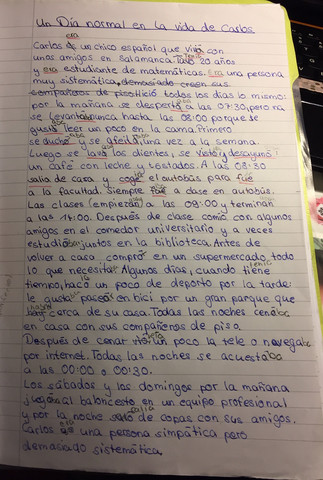 Un Día normal en la vida de Carlos
era
Carlos es un chico español que vivía con
unos amigos en Salamanca. Tenía 20 años
y era estudiante de matemáticas. Era una persona
muy sistemática, demasiado creen sus
compañeros de piso. Hició todos los días lo mismo:
por la mañana se despertaba a las 07:30, pero no
se levantaba nunca hasta las 08:00 porque se
gusta leer un poco en la cama. Primero
se duchó y se afeitó, una vez a la semana.
Luego se lavó los dientes, se vistió y desayunó
un café con leche y tostados. A las 08:30
salía de casa y cogía el autobús para
a la facultad. Siempre fue a clase en autobús.
Las clases empiezan a las 09:00 y terminan
a las 14:00. Después de clase comió con algunos
amigos en el comedor universitario y a veces
estudiaban juntos en la biblioteca. Antes de
volver a casa compró en un supermercado todo
lo que necesita. Algunos días, cuando tiene
tiempo, hacía un poco de deporto por la tarde:
le gusta pasear en bici por un gran parque que
había cerca de su casa. Todas las noches cenaba
en casa con sus compañeros de piso.
Después de cenar un poco la tele o navegaba
por internet. Todas las noches se acuestaba
a las 00:00 o 00:30.
Los sábados y los domingos por la mañana
jugó al baloncesto en un equipo profesional
y por la noche salió de copas con sus amigos.
Carlos es una persona simpática pero
demasiado sistemática